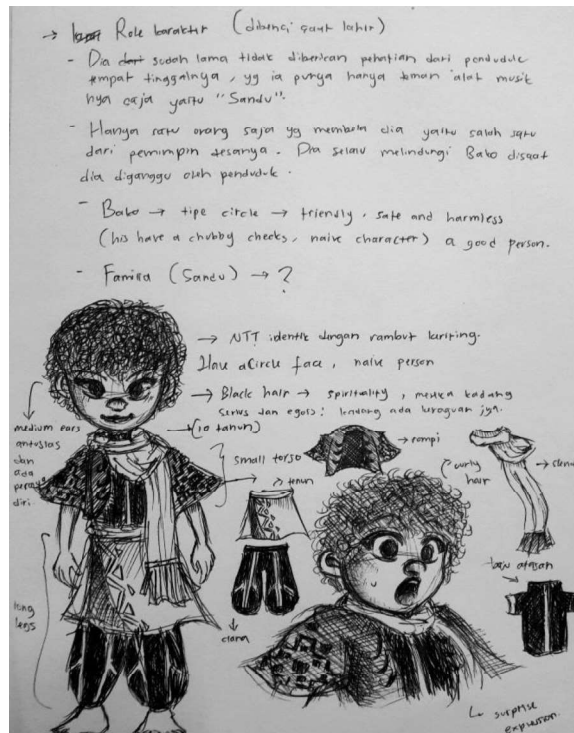 → Role karakter (dibenci saat lahir)
- Dia sudah lama tidak diberikan perhatian dari penduduk
tempat tinggalnya, yg ia punya hanya teman alat musik
nya saja yaitu "Sandu".
- Hanya satu orang saja yg membela dia yaitu salah satu
dari pemimpin desanya. Dia selalu melindungi Bako disaat
dia diganggu oleh penduduk.
- Bako → tipe circle → friendly, safe and harmless
(his have a chubby cheeks, naive character) a good person.
- Familia (Sandu) → ?
→ NTT identik dengan rambut keriting.
Have a Circle face, naive person
→ Black hair → spirituality, mereka kadang
serius dan egois; kadang ada keraguan jga.
→ (10 tahun)
medium ears
antusias
dan
ada
percaya
diri.
small torso
→ rompi
curly
hair
→ tenun
long
legs
celana
baju atasan
↳ surprise
expression.